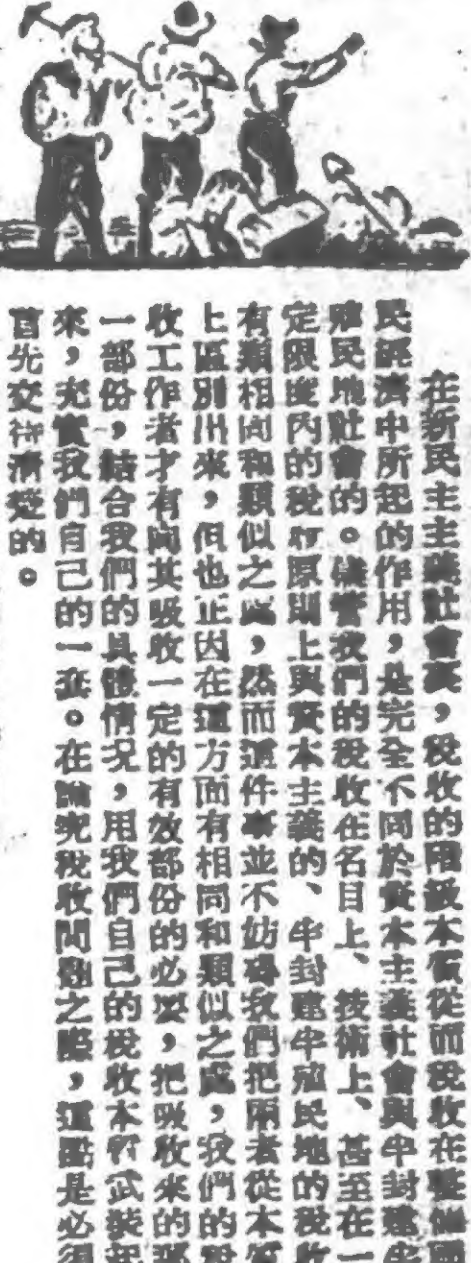 在新民主主義社會裏，稅收的階級本質從而稅收在整個國
民經濟中所起的作用，是完全不同於資本主義社會與半封建半
殖民地社會的。儘管我們的稅收在名目上、技術上、甚至在一
定限度內的稅收原則上與資本主義的、半封建半殖民地的稅收
有類相同和類似之處，然而這件事並不妨礙我們把兩者從本質
上區別出來，但也正因在這方面有相同和類似之處，我們的稅
收工作者才有向其吸收一定的有效部份的必要，把吸收來的那
一部份，結合我們的具體情況，用我們自己的稅收本質武裝起
來，充實我們自己的一套。在論究稅收問題之際，這點是必須
首先交待清楚的。